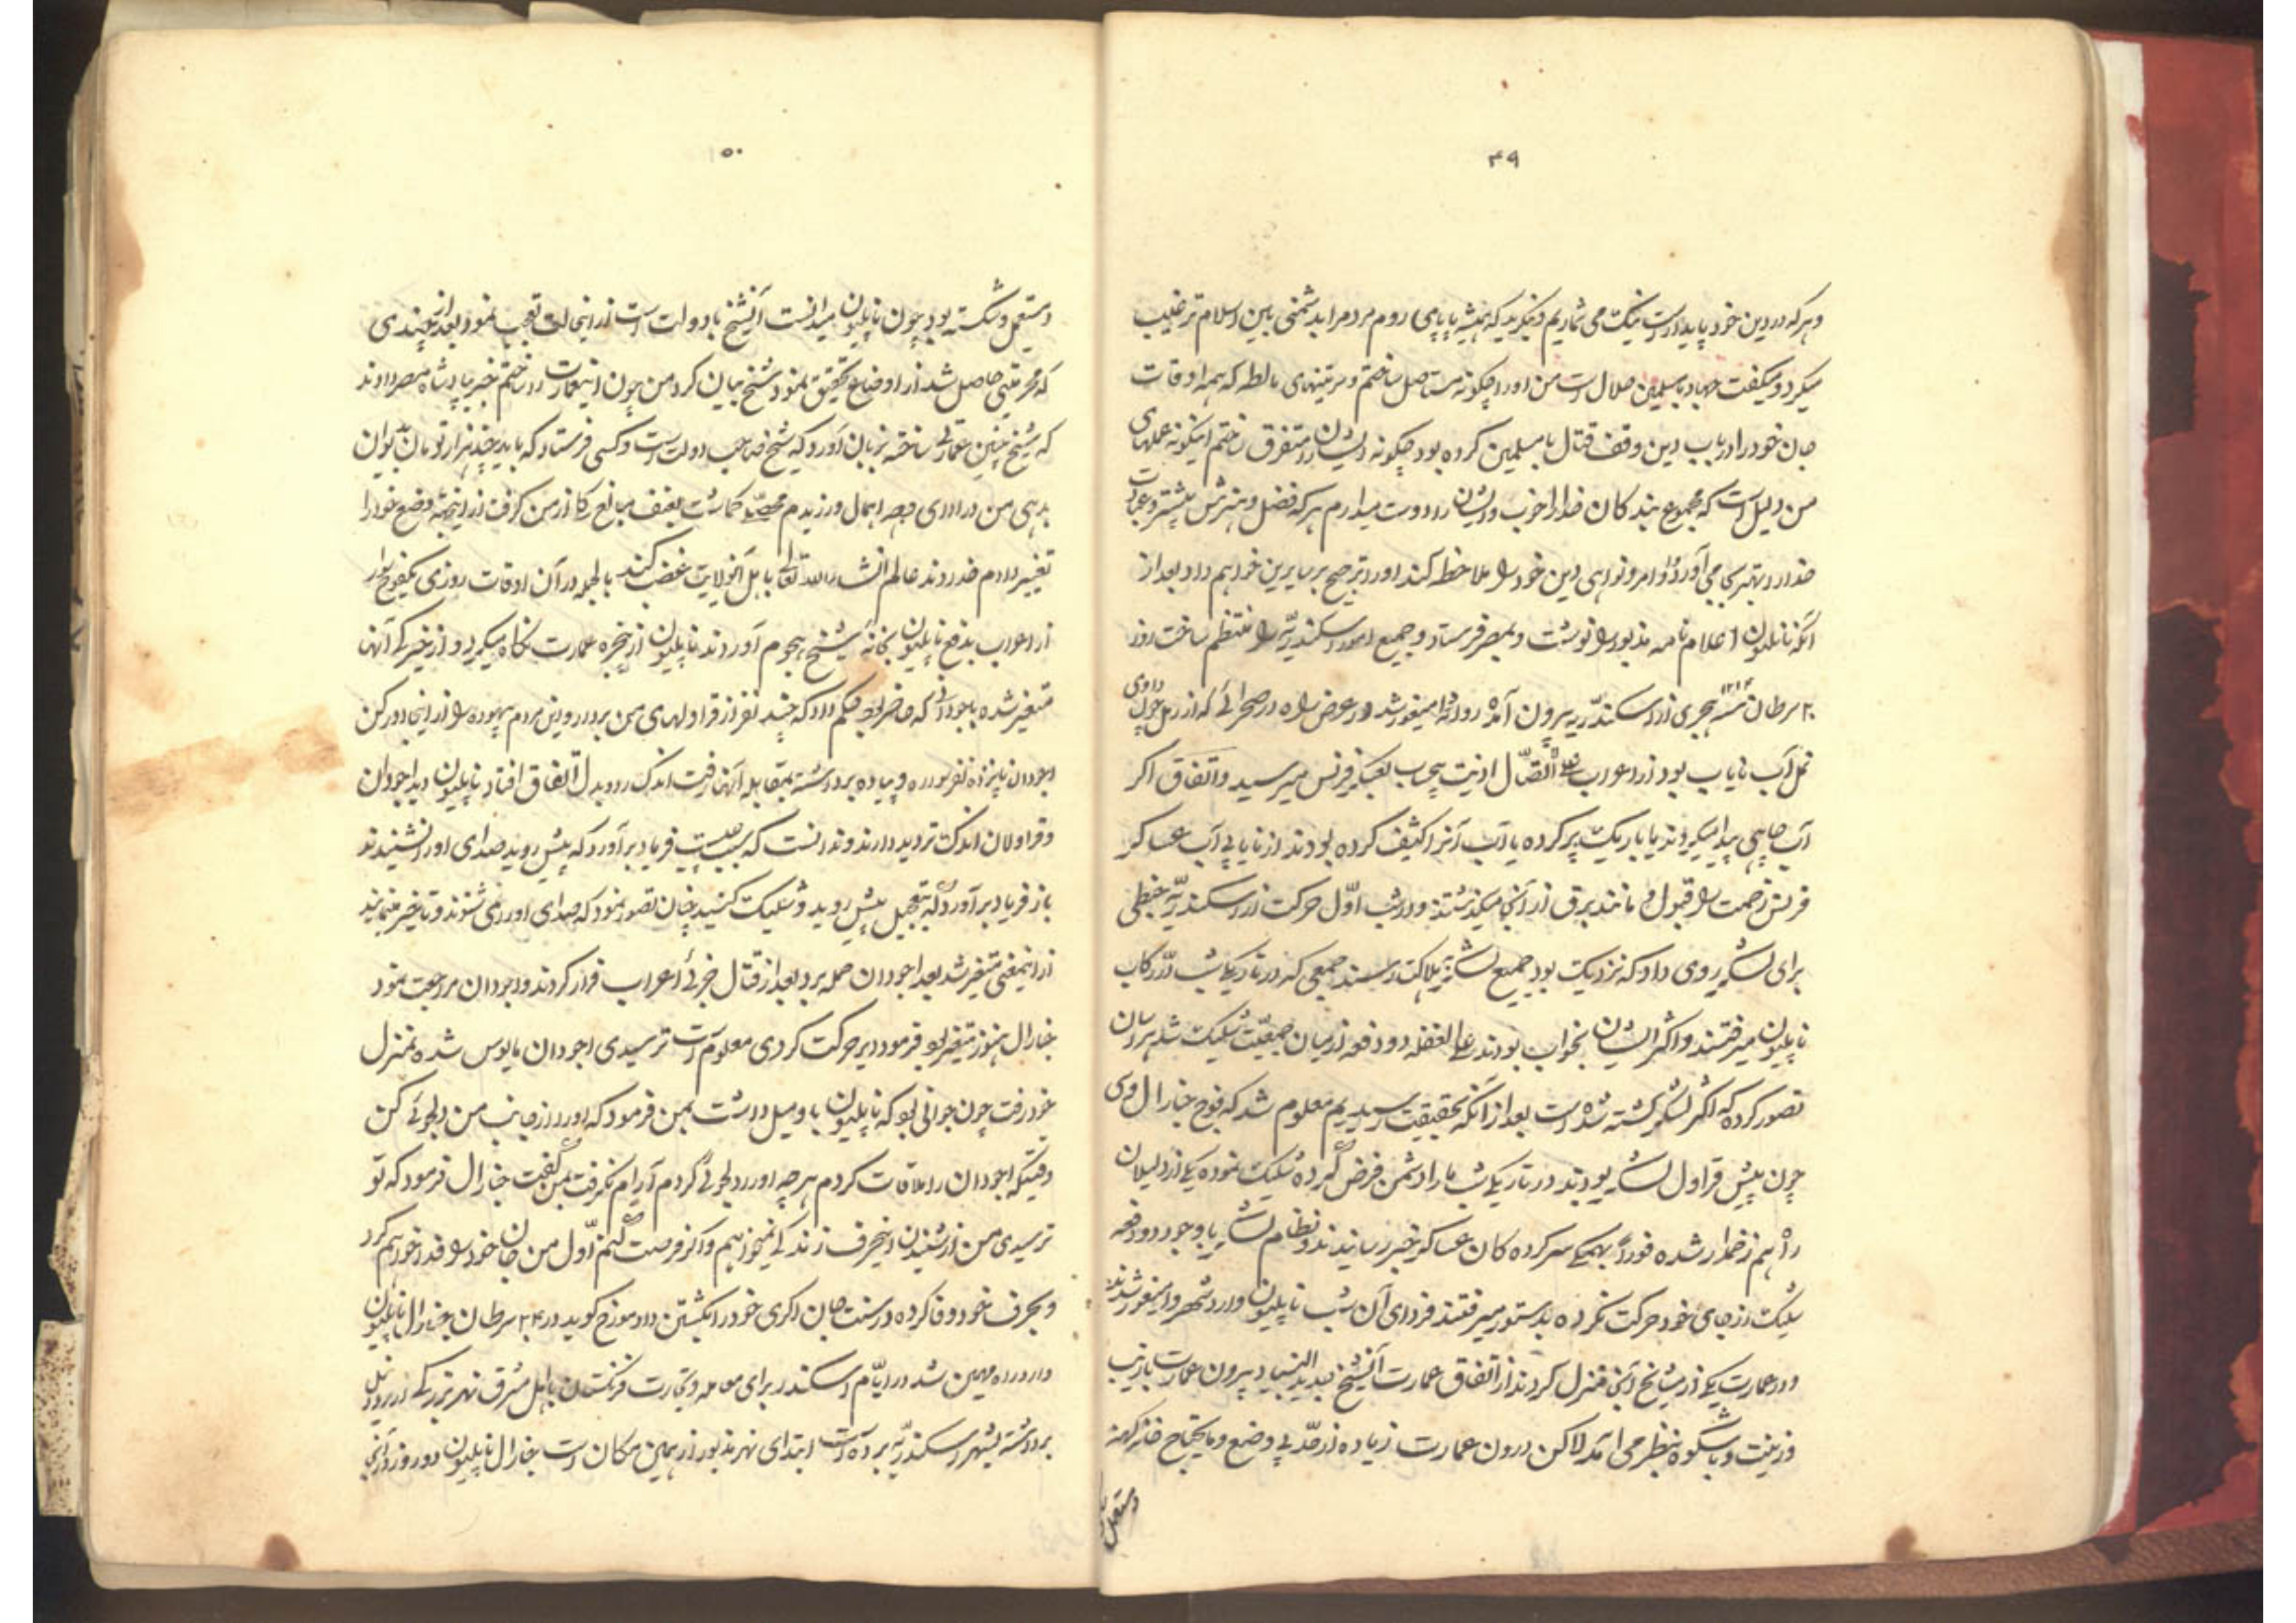 ۴۹
و هرکه در دین خود پایدار است نیک می شماریم و بنگرید که همیشه پاپای روم مردم را بدشمنی باین اسلام ترغیب
میکرد و میگفت جهاد با مسلمین حلال است من او را چگونه مستأصل ساختم و مرتبتهای مالطه که همه اوقات
جان خود را در باب دین وقف قتال با مسلمین کرده بود چگونه ایشان را متفرق ساختم اینگونه عملهای
من دلیل است که مجموع بندکان خدا را خوب و ایشان را دوست میدارم هرکه فضل و هنرش بیشتر و عبادت
خدا را بهتر بجا می آورد و اوامر و نواهی دین خود را ملاحظه کند او را ترجیح بر سایرین خواهم داد بعد از
آنکه ناپلیون اعلام نامه مذبور را نوشت و بمصر فرستاد و جمیع امور اسکندریّه را منتظم ساخت روز
۲۰ سرطان سنه ۱۲۱۳ هجری از اسکندریه بیرون آمده روانه دامینغور شد در عرض راه در صحرائی که از رمل چون وادی
نمل آب نایاب بود از اعراب علی الاتّصال اذیت بیحساب بعسکر فرنس میرسید و اتفاق اگر
آب چاهی پیدا میکردند یا با ریک پر کرده یا آب آنرا کثیف کرده بودند از نایابی آب عساکر
فرنس زحمت را قبول و مانند برق از آنجا میگذشتند و در شب اوّل حرکت از اسکندریّه خبطی
برای لشکر روی داد که نزدیک بود جمیع لشکر بهلاکت رسند جمعی که در تاریکی شب در رکاب
ناپلیون میرفتند و اکثر ایشان بخواب بودند علی الغفله دو دفعه از میان جمعیّت شلیک شد هراسان
تصور کرده که اکثر لشکر کشته شده است بعد از آنکه بحقیقت رسیدیم معلوم شد که فوج جنارال دزی
چون پیش قراول لشکر بودند در تاریکی شب ما را دشمن فرض کرده شلیک نموده یکی از دلیلان
راه هم زخمدار شده فوراً بهمکی سرکرده کان عساکر خبر رسانیدند و نظام لشکر با وجود دو دفعه
شلیک از جای خود حرکت نکرده بدستور میرفتند فردای آن شب ناپلیون وارد شهر دامینغور شدند
و در عمارت یکی از مشایخ آنجا منزل کردند از اتفاق عمارت آنشیخ جدید البنیاد بیرون عمارت بازیب
و زینت و باشکوه بنظر می آمد لاکن درون عمارت زیاده از حد بی وضع و مایحتاج خانه کهنه
و مستعمل
۵۰
و مستعمل و شکسته بود چون ناپلیون میدانست آنشیخ با دولت است از اینحالت تعجب نمود بعد از چندی
که محرمیتی حاصل شد از اوضاع تحقیق نمود شیخ بیان کرد من چون این عمارت را ساختم خبر بپادشاه مصر دادند
که شیخ چنین عمارتی ساخته بزبان آورد که شیخ صاحب دولت است و کسی فرستاد که باید چند هزار تومان بدیوان
بدهی من در ادای وجه اهمال ورزیدم محصّلی گماشت بعنف مبالغ را از من گرفت از اینجهة وضع خود را
تغییر دادم خداوند عالم انشاءالله تعالی باهل آنولایت غضب کند بالجمله در آن اوقات روزی یکفوج سوار
از اعراب بدفع ناپلیون بخانه شیخ هجوم آوردند ناپلیون از پنجره عمارت نگاه میکرد و از خیرگی آنها
متغیر شده باجودانی که حاضر بود حکم داد که چند نفر از قراولهای من بردار و این مردم بیهوده را از اینجا دور کن
اجودان پانزده نفر سواره و پیاده برداشته بمقابله آنها رفت اندک رد و بدل اتفاق افتاد ناپلیون دید اجودان
و قراولان اندک تردید دارند و ندانست که سبب چیست فریاد برآورد که پیش روید صدای او را نشنیدند
باز فریاد برآورد که بتعجیل پیش روید و شلیک کنید چنان تصور نمود که صدای او را می شنوند و تأخیر مینمایند
از اینمعنی متغیر شد بعد اجودان حمله برد بعد از قتال جزئی اعراب فرار کردند و اجودان مراجعت نمود
جنارال هنوز متغیر بود فرمود دیر حرکت کردی معلوم است ترسیدی اجودان مایوس شده بمنزل
خود رفت چون جوانی بود که ناپلیون با او میل داشت بمن فرمود که او را از جانب من دلجوئی کن
وقتیکه اجودان را ملاقات کردم هر چه او را دلجوئی کردم آرام نگرفت بمن گفت جنارال فرمود که تو
ترسیدی من از شنیدن اینحرف زندکی نمیخواهم و اگر فرصت کنم اوّل من جان خود را فدا خواهم کرد
و بحرف خود وفا کرده در سنت جان اکری خود را بکشتن داد مورخ کوید در ۲۴ سرطان جنارال ناپلیون
وارد راه مهین شد در ایّام اسکندر برای معامله و تجارت فرنگستان باهل مشرق نهر بزرگی از رود نیل
برداشته بشهر اسکندریّه برده است ابتدای نهر مذبور از همین مکان است جنارال ناپلیون دو روز در آنجا